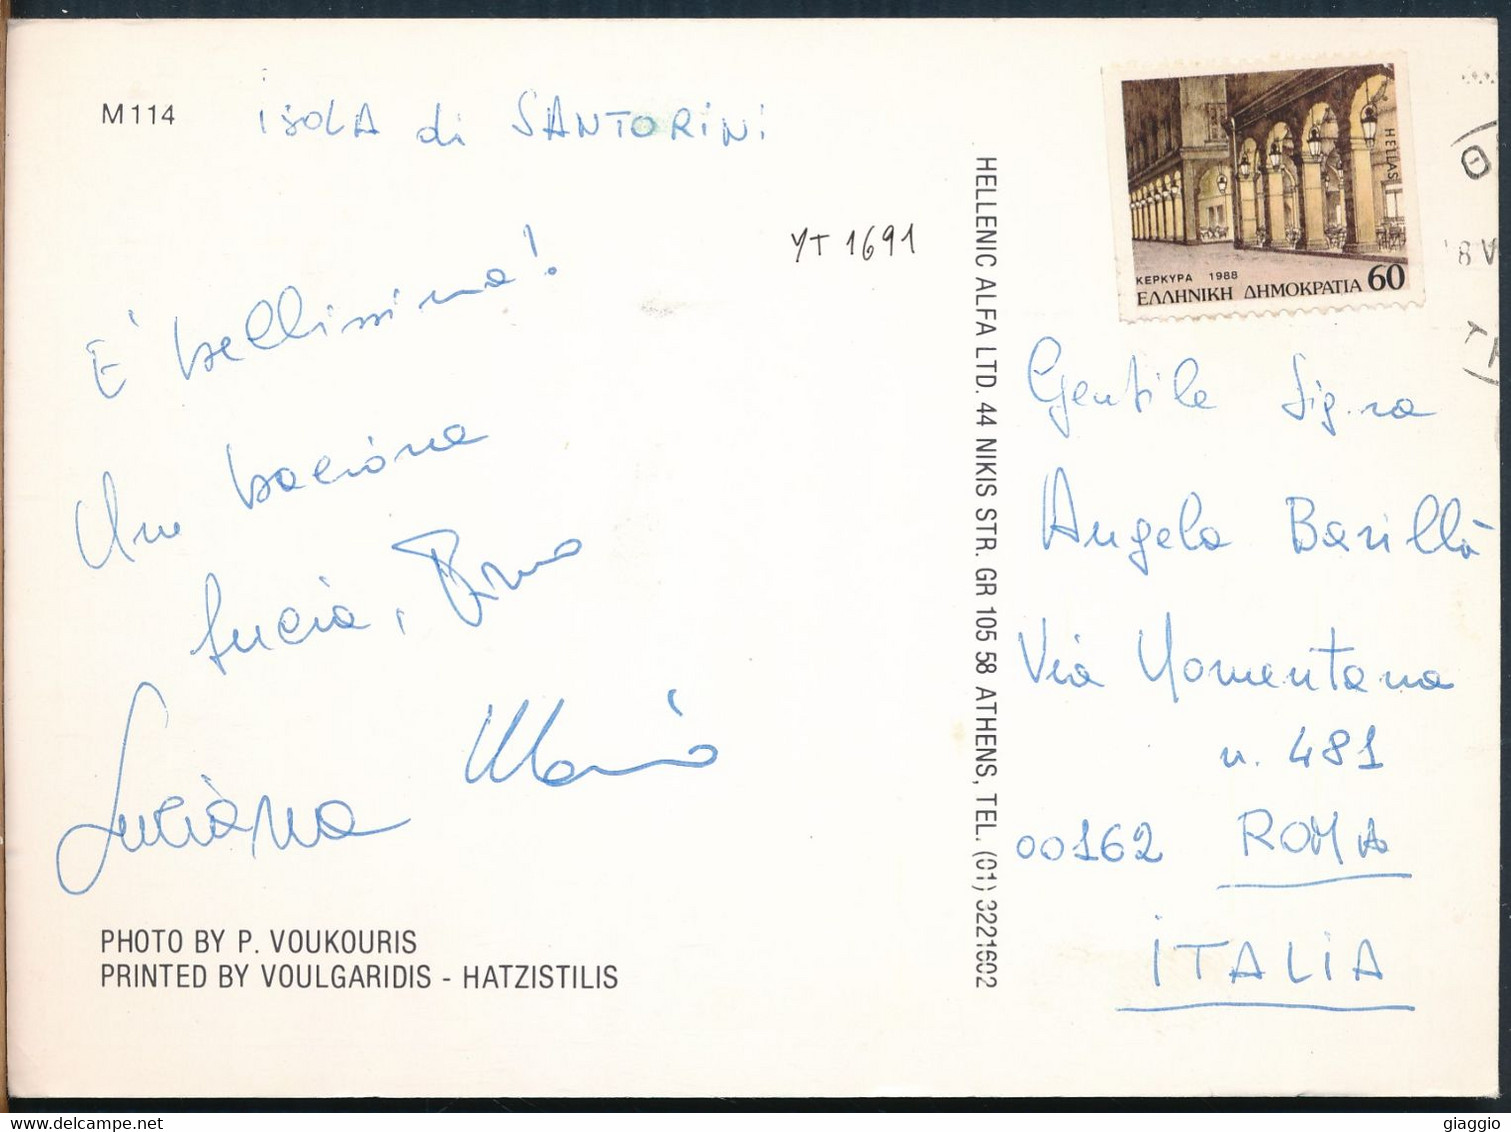 M114
isola di SANTORINI
YT 1691
E' bellissima!
Un bacione
Lucia, Bruno
Luciana Mario
PHOTO BY P. VOUKOURIS
PRINTED BY VOULGARIDIS - HATZISTILIS
HELLENIC ALFA LTD. 44 NIKIS STR. GR 105 58 ATHENS, TEL. (01) 3221602
HELLAS
ΚΕΡΚΥΡΑ 1988
ΕΛΛΗΝΙΚΗ ΔΗΜΟΚΡΑΤΙΑ 60
Gentile Sig.ra
Angela Barillà
Via Nomentana
n. 481
00162 ROMA
ITALIA
giaggio